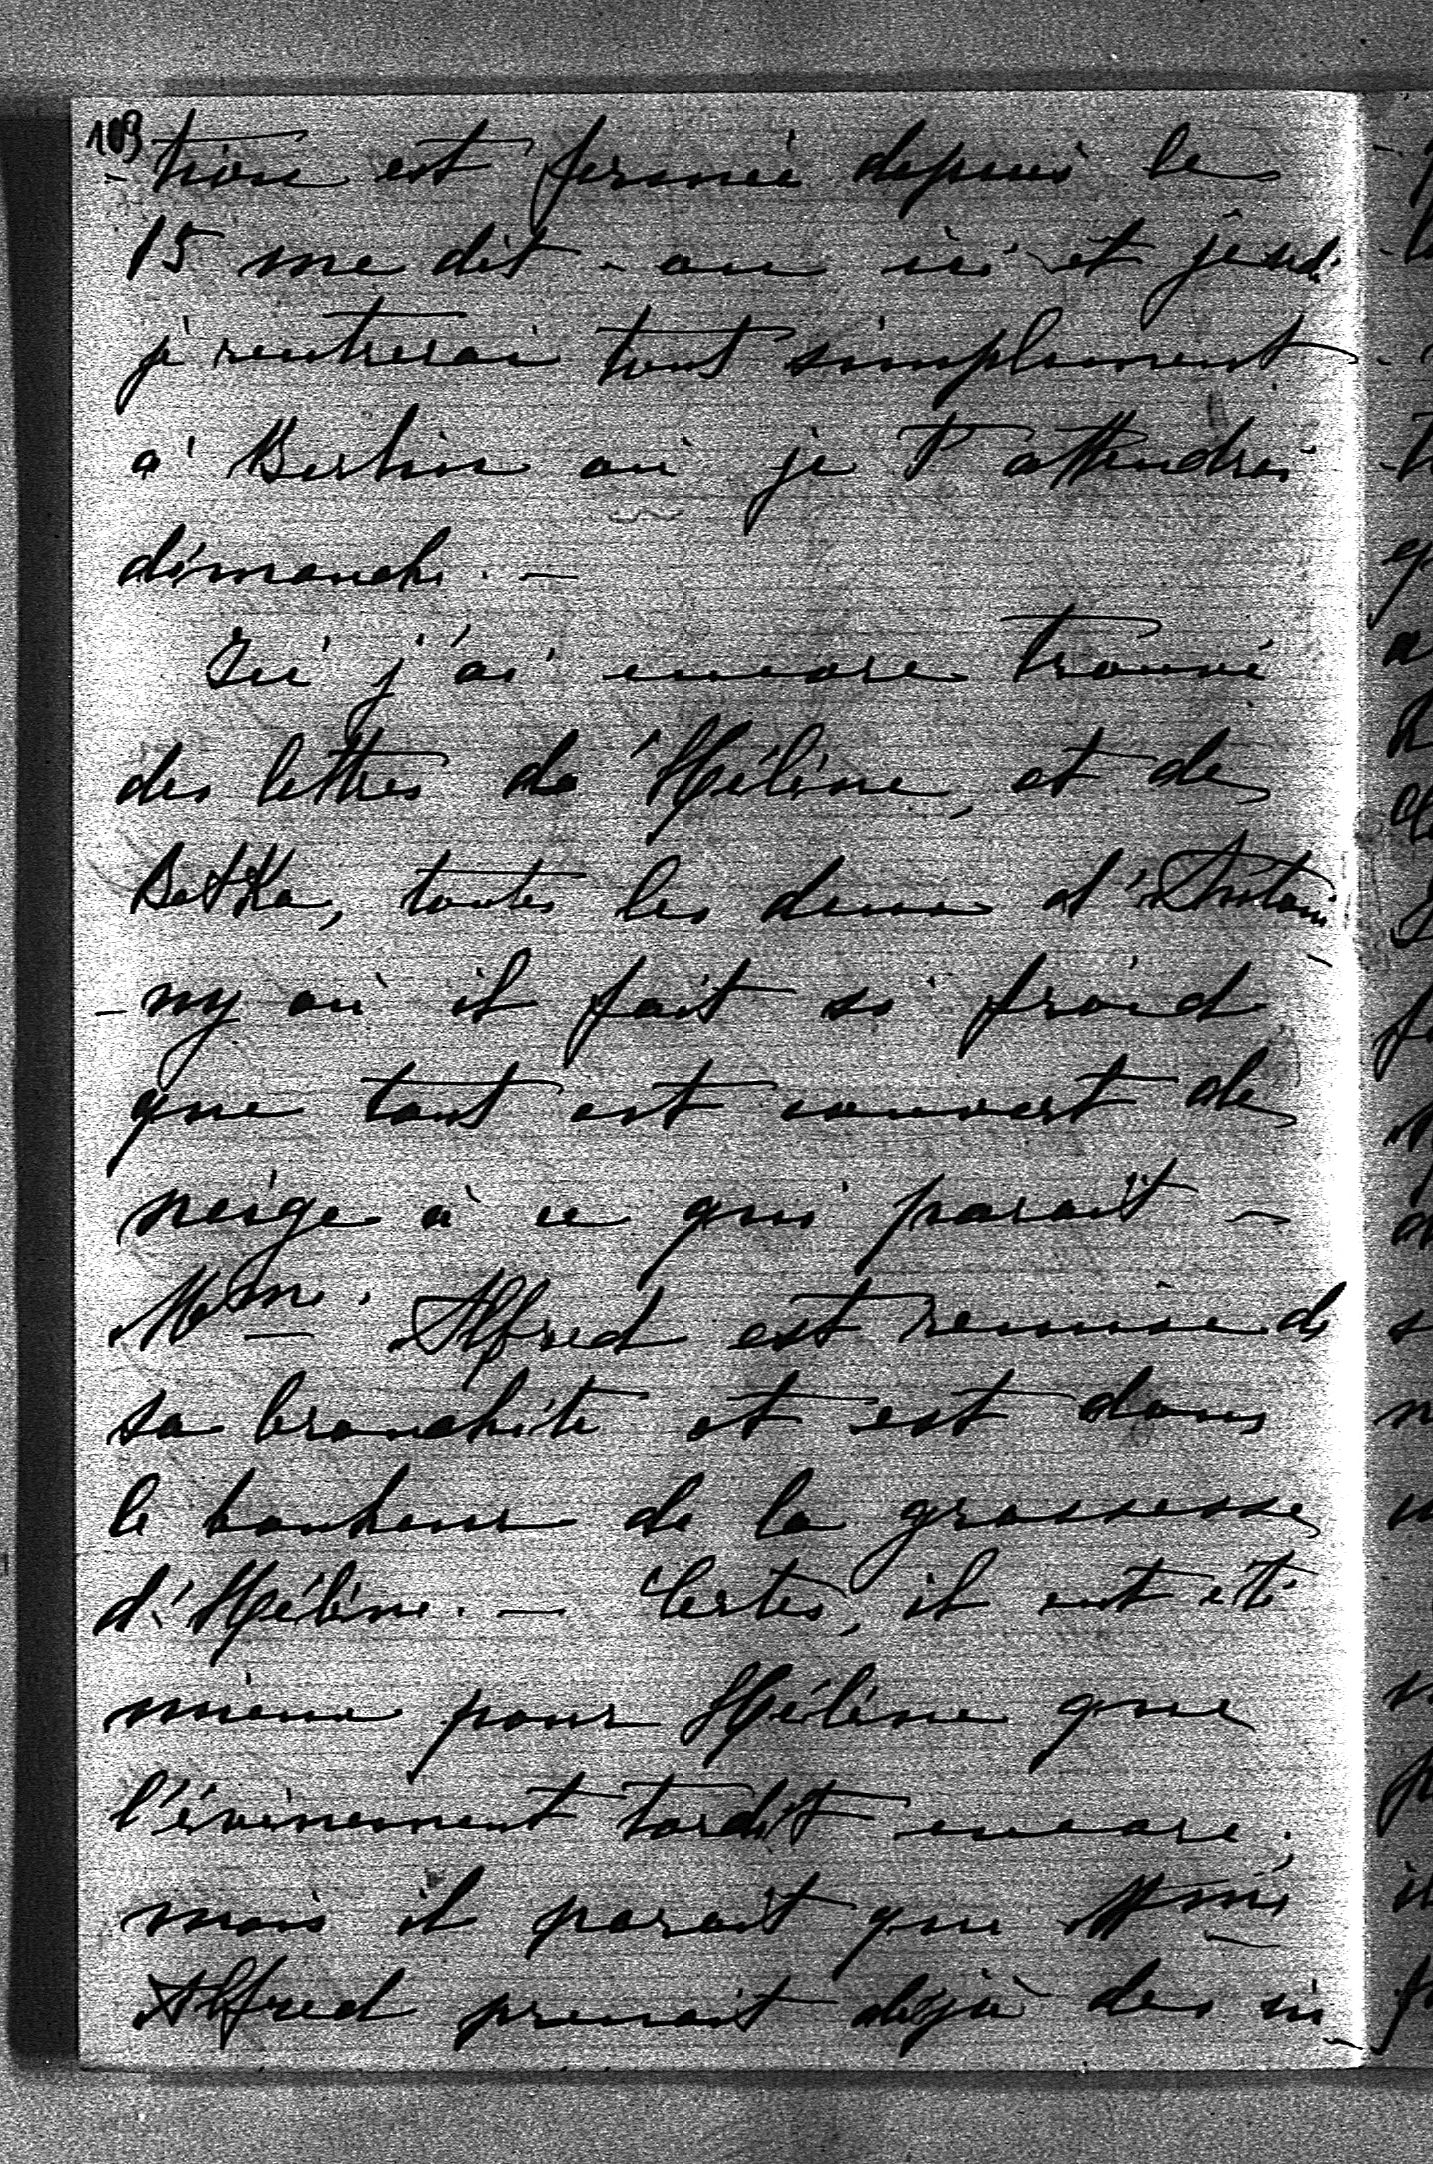 103
-tion est fermée depuis le
15 me dit-on ici et jeudi
je rentrerai tout simplement
à Berlin où je t'attendrai
dimanche. —
Ici j'ai encore trouvé
des lettres de Hélène, et de
Betka, toutes les deux d'Antoni-
-ny où il fait si froid
que tout est couvert de
neige à ce qui paraît —
Mme. Alfred est remise de
sa bronchite et est dans
le bonheur de la grossesse
d'Hélène. — Certes, il eut été
mieux pour Hélène que
l'évènement tardât encore,
mais il paraît que Mme
Alfred prenait déjà des in-